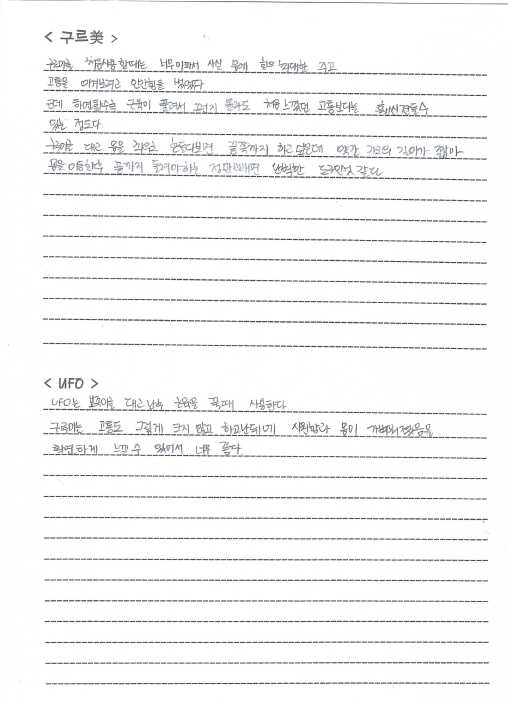 < 구르美 >
구르미를 처음사용할때는 너무아파서 사실 몸에 힘을 최대한 주고
고통을 이겨보려고 안간힘을 썼었다
근데 하면할수록 근육이 풀려서 그런지 몰라도 처음 느꼈던 고통보다는 훨씬 견딜수
있는 정도다
구르미를 대고 몸을 좌우로 흔들다보면 끝쪽까지 하고싶은데 약간 길이가 짧아
몸을 이동한후 끝까지 돌려야하는 점만빼면 완벽한 도구인것 같다
< UFO >
UFO는 대고 근육을 풀때 사용하다
구르미는 고통도 그렇게 크지 않고 하고난뒤에 시원함과 몸이 가벼워졌음을
확연하게 느낄수 있어서 너무 좋다